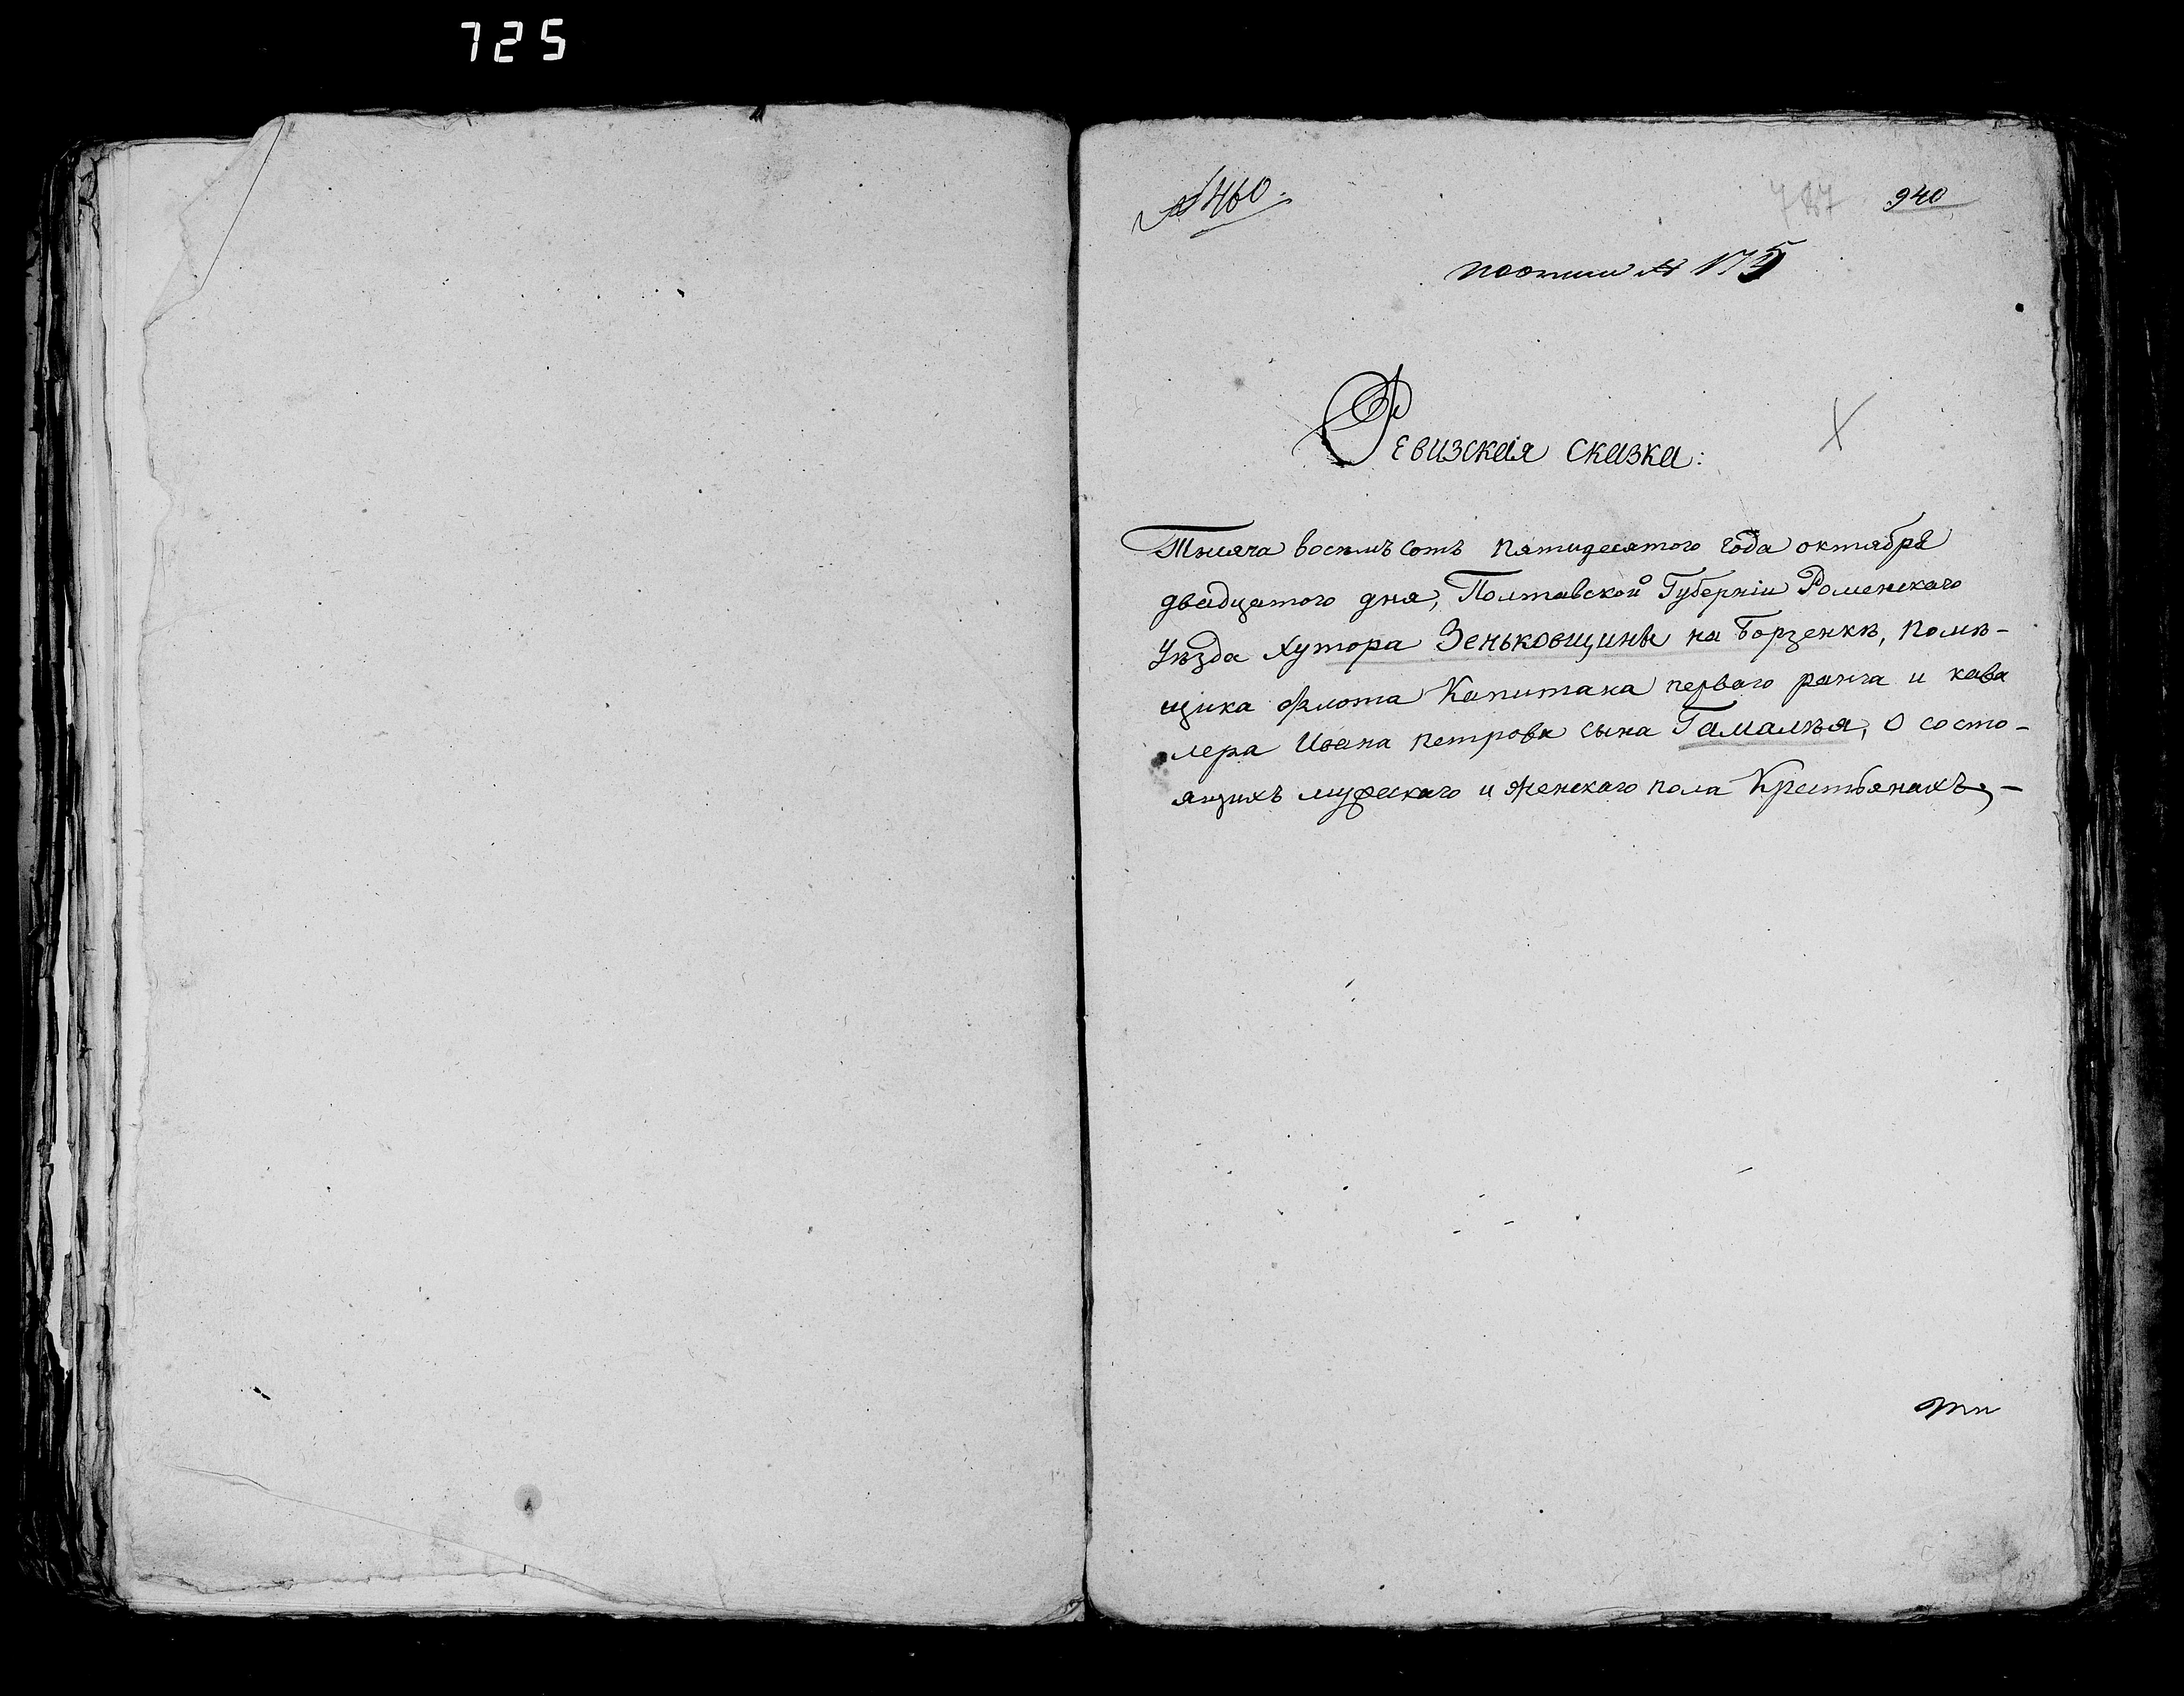 725
№ 460.
787 940
по описи № 175
Ревизская сказка:
Тысяча восемъ сотъ пятидесятого года октября
двадцатого дня, Полтавской Губерніи Роменскаго
Уѣзда хутора Зеньковщины на Борзенкѣ, помѣ-
щика флота Капитана перваго ранга и кава
лера Ивана петрова сына Гамалѣя, о состо-
ящихъ мужескаго и женскаго пола Крестьянахъ, -